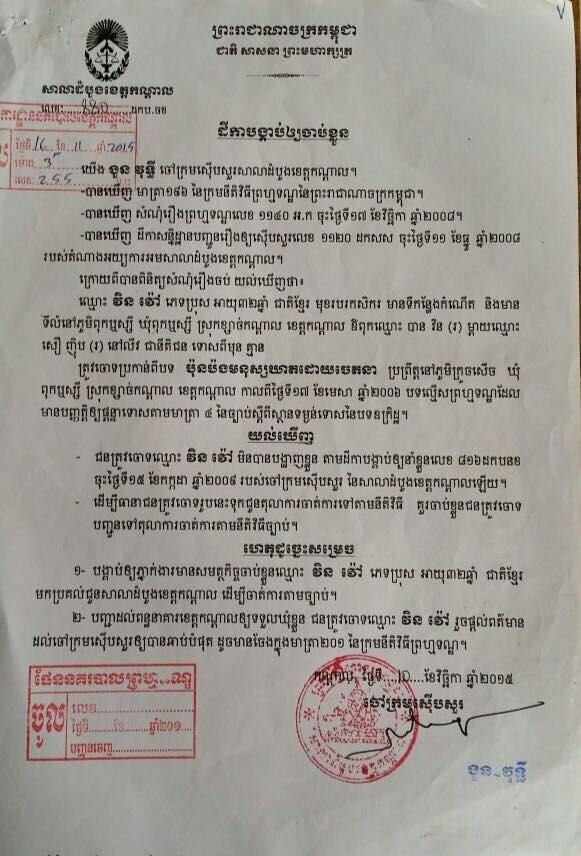 ព្រះរាជាណាចក្រកម្ពុជា
ជាតិ សាសនា ព្រះមហាក្សត្រ
សាលាដំបូងខេត្តកណ្តាល
លេខ: ដកប.ចខ
ថ្ងៃទី 16 ខែ 11 ឆ្នាំ 2015
ម៉ោង 3
លេខ: 255
ដីកាបង្គាប់ឲ្យចាប់ខ្លួន
យើង ងួន វុទ្ធី ចៅក្រមស៊ើបសួរសាលាដំបូងខេត្តកណ្តាល។
-បានឃើញ មាត្រា១៩៦ នៃក្រមនីតិវិធីព្រហ្មទណ្ឌនៃព្រះរាជាណាចក្រកម្ពុជា។
-បានឃើញ សំណុំរឿងព្រហ្មទណ្ឌលេខ ១១៤០ អ.ក ចុះថ្ងៃទី១៧ ខែវិច្ឆិកា ឆ្នាំ២០០៨។
-បានឃើញ ដីកាសន្និដ្ឋានបញ្ជូនរឿងឲ្យស៊ើបសួរលេខ ១១២០ ដកសស ចុះថ្ងៃទី១១ ខែធ្នូ ឆ្នាំ២០០៨
របស់តំណាងអយ្យការអមសាលាដំបូងខេត្តកណ្តាល។
ក្រោយពីបានពិនិត្យសំណុំរឿងចប់ យល់ឃើញថា៖
ឈ្មោះ រិន វ៉ៅ ភេទប្រុស អាយុ៣២ឆ្នាំ ជាតិខ្មែរ មុខរបរកសិករ មានទីកន្លែងកំណើត និងមាន
ទីលំនៅភូមិពុកឬស្សី ឃុំពុកឬស្សី ស្រុកខ្សាច់កណ្តាល ខេត្តកណ្តាល ឪពុកឈ្មោះ បាន រិន (រ) ម្តាយឈ្មោះ
សឿ ញ៉ិប (រ) នៅលីវ ជានីតិជន ទោសពីមុន គ្មាន
ត្រូវចោទប្រកាន់ពីបទ ប៉ុនប៉ងមនុស្សឃាតដោយចេតនា ប្រព្រឹត្តនៅភូមិក្រូចសើច ឃុំ
ពុកឬស្សី ស្រុកខ្សាច់កណ្តាល ខេត្តកណ្តាល កាលពីថ្ងៃទី១៧ ខែមេសា ឆ្នាំ២០០៦ បទល្មើសព្រហ្មទណ្ឌដែល
មានបញ្ញត្តិឲ្យផ្តន្ទាទោសតាមមាត្រា ៤ នៃច្បាប់ស្តីពីស្ថានទម្ងន់ទោសនៃបទឧក្រិដ្ឋ។
យល់ឃើញ
- ជនត្រូវចោទឈ្មោះ រិន វ៉ៅ មិនបានបង្ហាញខ្លួន តាមដីកាបង្គាប់ឲ្យនាំខ្លួនលេខ ៨១៦ដកបនខ
ចុះថ្ងៃទី១៥ ខែកក្កដា ឆ្នាំ២០០៩ របស់ចៅក្រមស៊ើបសួរ នៃសាលាដំបូងខេត្តកណ្តាលឡើយ។
- ដើម្បីធានាជនត្រូវចោទរូបនេះទុកជូនតុលាការចាត់ការទៅតាមនីតិវិធី គួរចាប់ខ្លួនជនត្រូវចោទ
បញ្ជូនទៅតុលាការចាត់ការតាមនីតិវិធីច្បាប់។
ហេតុដូច្នេះសម្រេច
១- បង្គាប់ឲ្យភ្នាក់ងារមានសមត្ថកិច្ចចាប់ខ្លួនឈ្មោះ រិន វ៉ៅ ភេទប្រុស អាយុ៣២ឆ្នាំ ជាតិខ្មែរ
មកប្រគល់ជូនសាលាដំបូងខេត្តកណ្តាល ដើម្បីចាត់ការតាមច្បាប់។
២- បញ្ជាដល់ពន្ធនាគារខេត្តកណ្តាលឲ្យទទួលឃុំខ្លួន ជនត្រូវចោទឈ្មោះ រិន វ៉ៅ រួចផ្តល់ព័ត៌មាន
ដល់ចៅក្រមស៊ើបសួរឲ្យបានឆាប់បំផុត ដូចមានចែងក្នុងមាត្រា២០១ នៃក្រមនីតិវិធីព្រហ្មទណ្ឌ។
កណ្តាល, ថ្ងៃទី...10...ខែវិច្ឆិកា ឆ្នាំ២០១៥
ចៅក្រមស៊ើបសួរ
ផែននគរបាលព្រហ្មទណ្ឌ
ចូល
លេខ
ថ្ងៃទី......ខែ......ឆ្នាំ២០១....
បញ្ជូនចេញ
ងួន វុទ្ធី